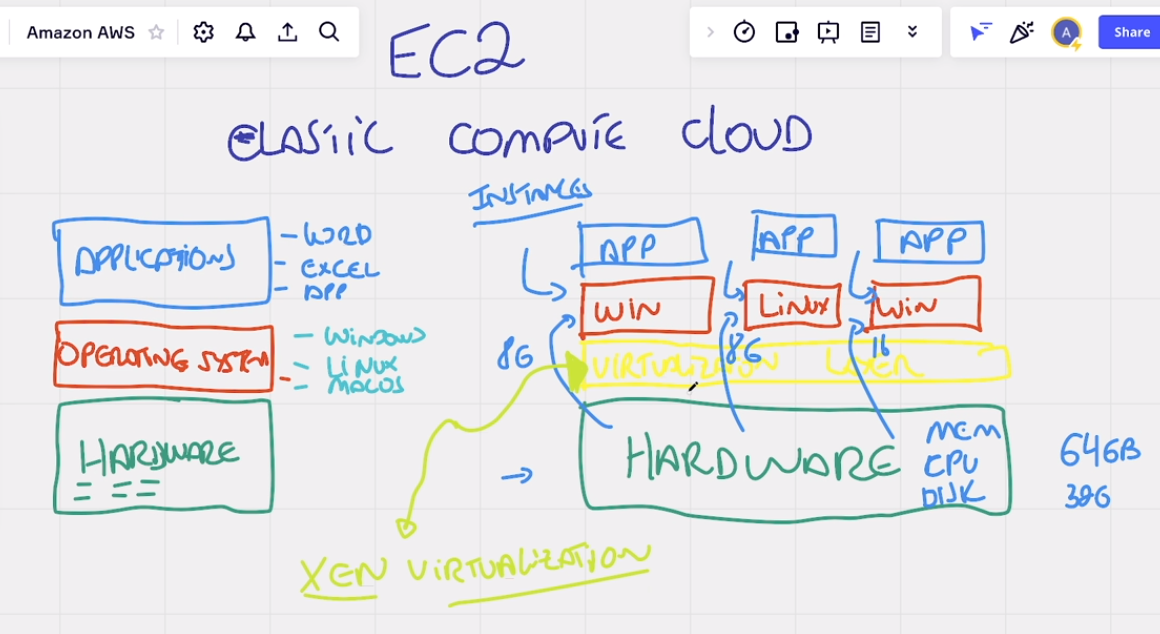 Amazon AWS
A
Share
EC2
ELASTIC COMPUTE CLOUD
INSTANCES
APPLICATIONS
- WORD
- EXCEL
- APP
OPERATING SYSTEM
- WINDOWS
- LINUX
- MACOS
HARDWARE
APP
APP
APP
WIN
LINUX
WIN
8G
8G
16
VIRTUALIZATION LAYER
HARDWARE
MEM
CPU
DISK
64GB
XEN VIRTUALIZATION